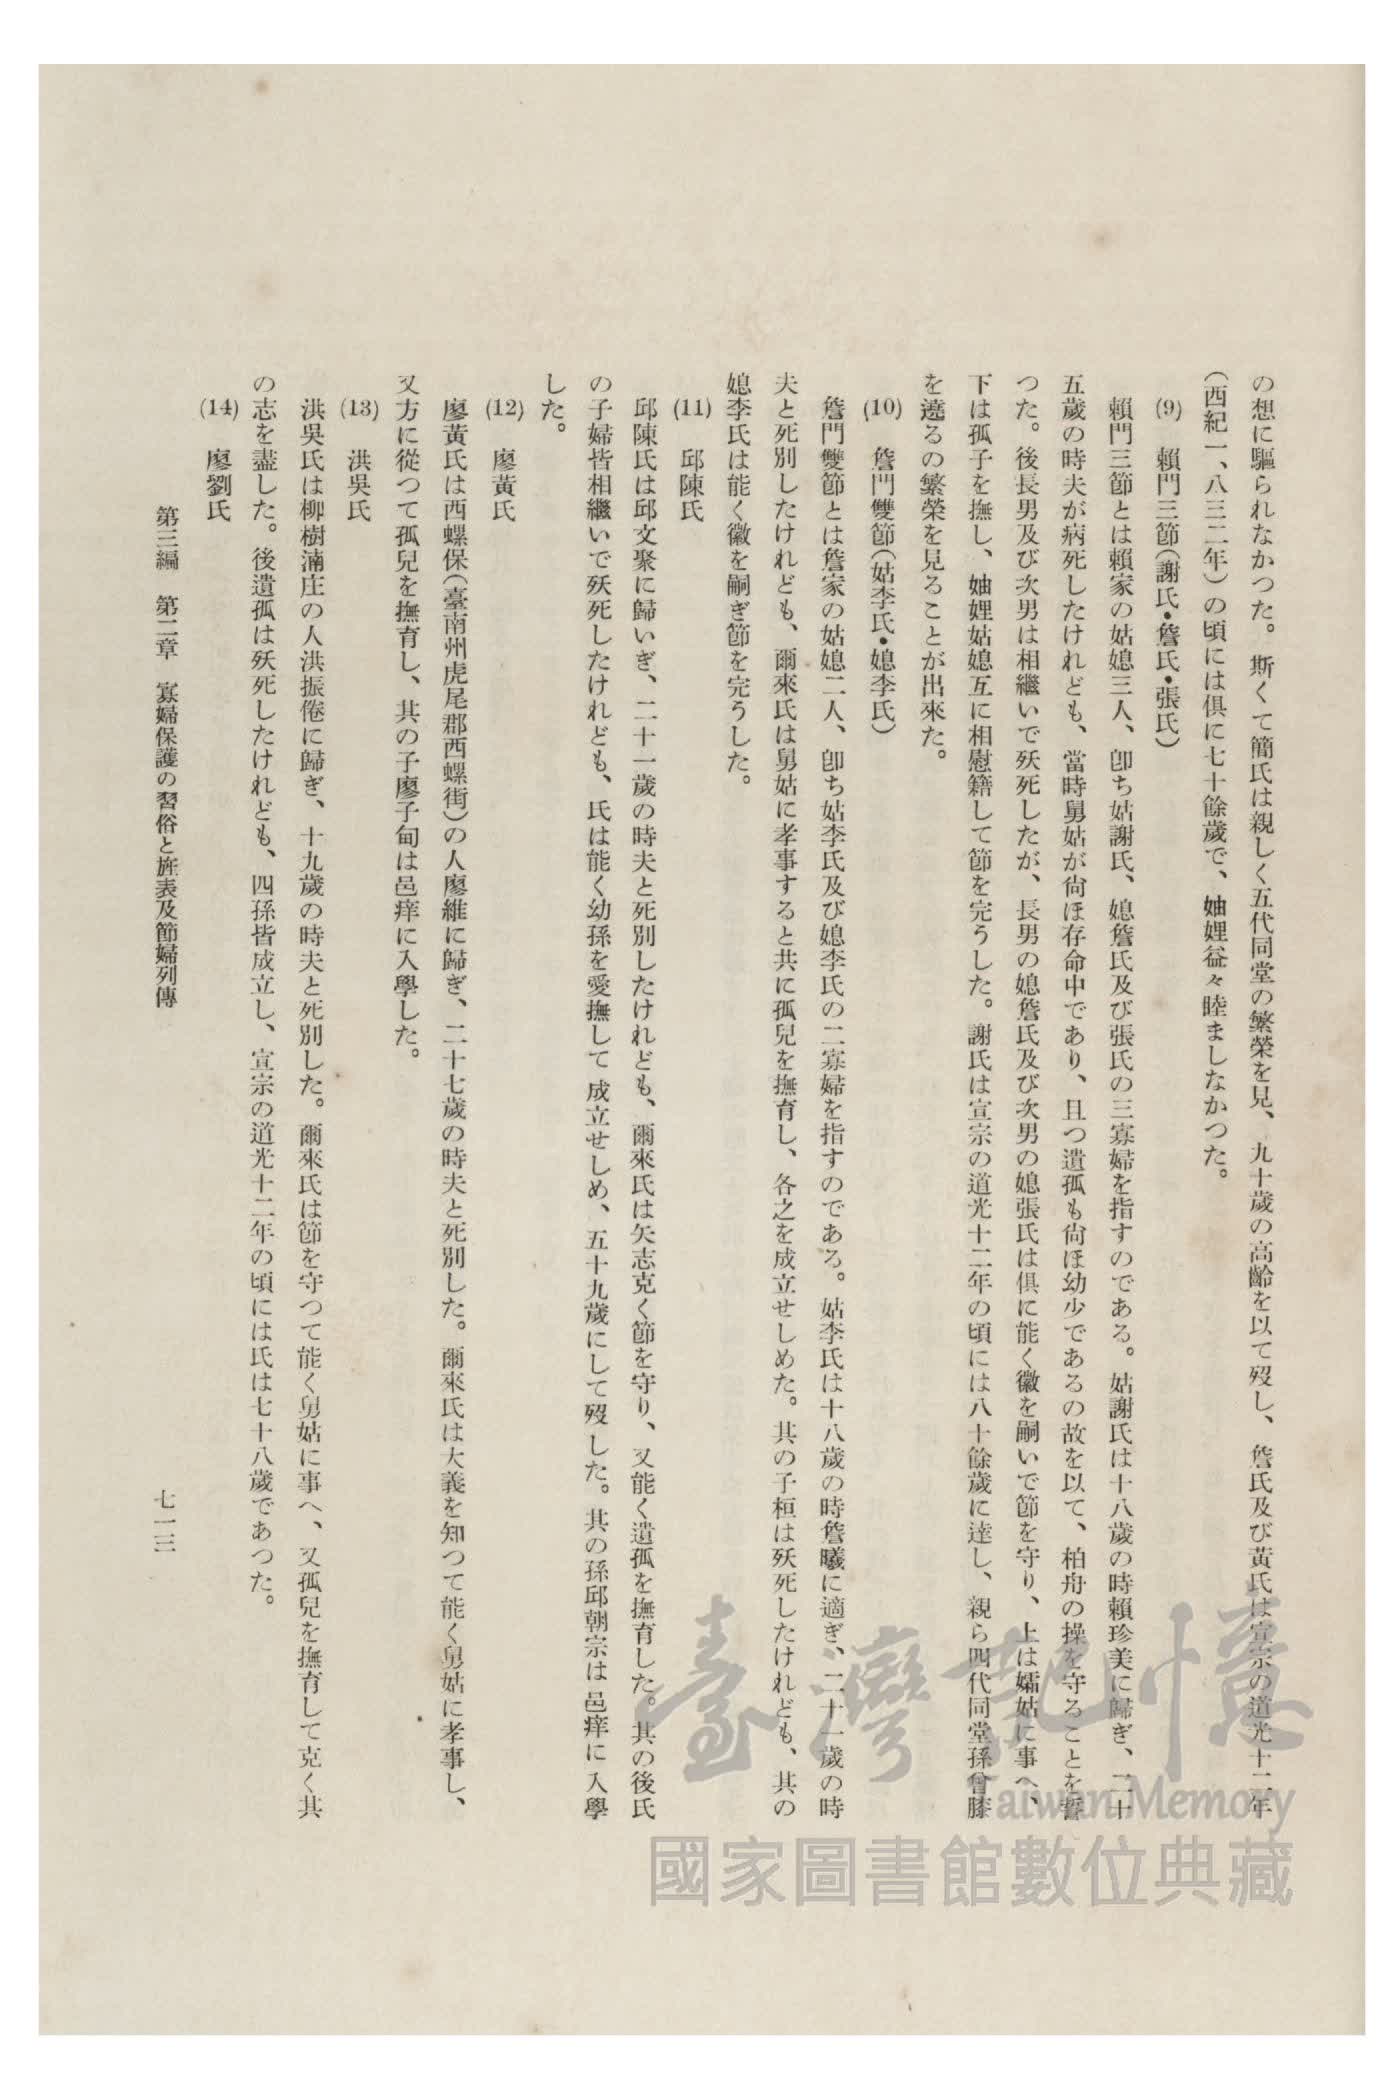 の想に驅られなかつた。斯くて簡氏は親しく五代同堂の繁榮を見、九十歲の高齡を以て歿し、詹氏及び黃氏は宣宗の道光十二年
(西紀一、八三二年)の頃には倶に七十餘歲で、妯娌益々睦ましなかつた。
(9) 賴門三節(謝氏・詹氏・張氏)
賴門三節とは賴家の姑媳三人、卽ち姑謝氏、媳詹氏及び張氏の三寡婦を指すのである。姑謝氏は十八歲の時賴珍美に歸ぎ、二十
五歲の時夫が病死したけれども、當時舅姑が尙ほ存命中であり、且つ遺孤も尙ほ幼少であるの故を以て、柏舟の操を守ることを誓
つた。後長男及び次男は相繼いで殀死したが、長男の媳詹氏及び次男の媳張氏は倶に能く徽を嗣いで節を守り、上は孀姑に事へ、
下は孤子を撫し、妯娌姑媳互に相慰籍して節を完うした。謝氏は宣宗の道光十二年の頃には八十餘歲に達し、親ら四代同堂孫曾膝
を遶るの繁榮を見ることが出來た。
(10) 詹門雙節(姑李氏・媳李氏)
詹門雙節とは詹家の姑媳二人、卽ち姑李氏及び媳李氏の二寡婦を指すのである。姑李氏は十八歲の時詹曦に適ぎ、二十一歲の時
夫と死別したけれども、爾來氏は舅姑に孝事すると共に孤兒を撫育し、各之を成立せしめた。其の子桓は殀死したけれども、其の
媳李氏は能く徽を嗣ぎ節を完うした。
(11) 邱陳氏
邱陳氏は邱文聚に歸いぎ、二十一歲の時夫と死別したけれども、爾來氏は矢志克く節を守り、又能く遺孤を撫育した。其の後氏
の子婦皆相繼いで殀死したけれども、氏は能く幼孫を愛撫して成立せしめ、五十九歲にして歿した。其の孫邱朝宗は邑痒に入學
した。
(12) 廖黃氏
廖黃氏は西螺保(臺南州虎尾郡西螺街)の人廖維に歸ぎ、二十七歲の時夫と死別した。爾來氏は大義を知つて能く舅姑に孝事し、
又方に從つて孤兒を撫育し、其の子廖子甸は邑痒に入學した。
(13) 洪吳氏
洪吳氏は柳樹湳庄の人洪振倦に歸ぎ、十九歲の時夫と死別した。爾來氏は節を守つて能く舅姑に事へ、又孤兒を撫育して克く其
の志を盡した。後遺孤は殀死したけれども、四孫皆成立し、宣宗の道光十二年の頃には氏は七十八歲であつた。
(14) 廖劉氏
第三編 第二章 寡婦保護の習俗と旌表及節婦列傳
七一三
臺灣記憶
Taiwan Memory
國家圖書館數位典藏